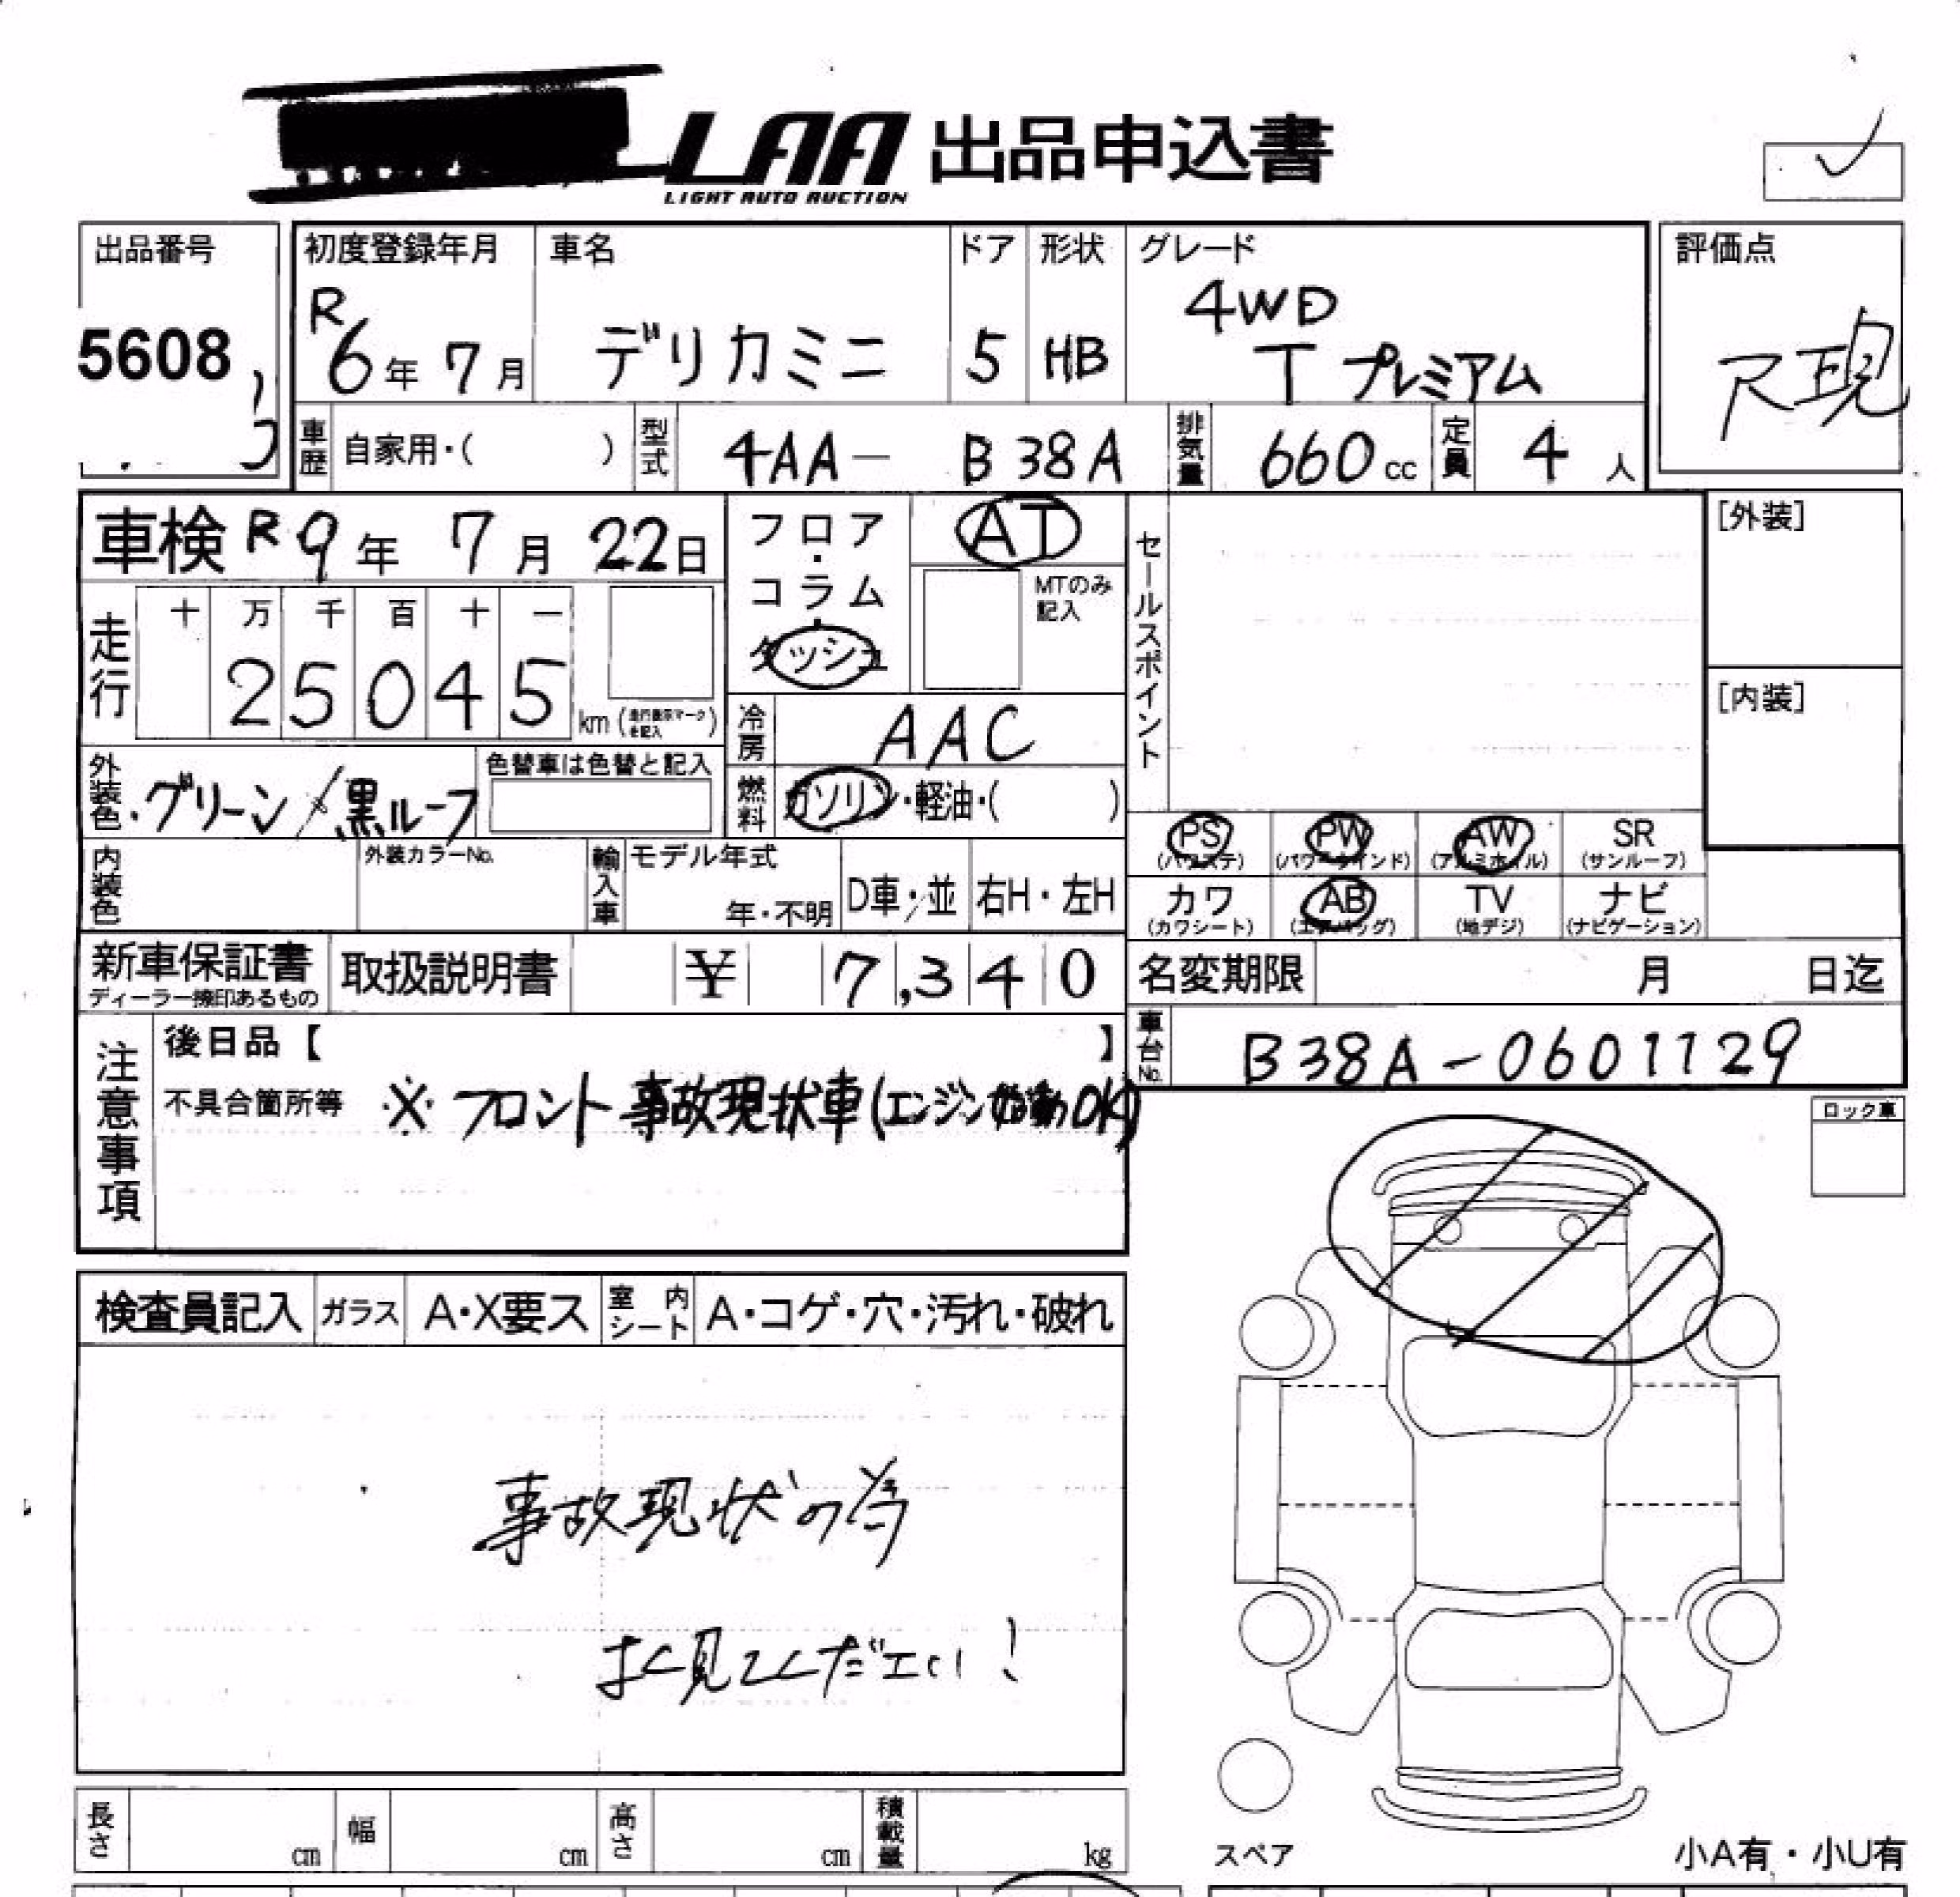 LAA 出品申込書
LIGHT AUTO AUCTION
出品番号 初度登録年月 車名 ドア 形状 グレード 評価点
5608 R6年 7月 デリカミニ 5 HB 4WD
T プレミアム
R現
車歴 自家用・( ) 型式 4AA- B38A 排気量 660cc 定員 4人
車検 R9年 7月 22日 フロア・コラム・ダッシュ AT セールスポイント [外装]
MTのみ記入
走行 十 万 千 百 十 一
25045 km (走行表示マークを記入) [内装]
冷房 AAC
外装色 グリーン/黒ルーフ 色替車は色替と記入 燃料 ガソリン・軽油・( )
PS (パワステ) PW (パワーウインド) AW (アルミホイル) SR (サンルーフ)
内装色 外装カラーNo. 輸入車 モデル年式 年・不明 D車・並 右H・左H
カワ (カワシート) AB (エアバッグ) TV (地デジ) ナビ (ナビゲーション)
新車保証書 ディーラー捺印あるもの 取扱説明書 ¥ 7,340 名変期限 月 日迄
注意事項 後日品【 】 車台No. B38A-0601129
不具合箇所等 ※フロント事故現状車(エンジン始動OK)
ロック車
検査員記入 ガラス A・X要ス 室内シート A・コゲ・穴・汚れ・破れ
事故現状の為
よく見てください!
長さ cm 幅 cm 高さ cm 積載量 kg スペア 小A有・小U有